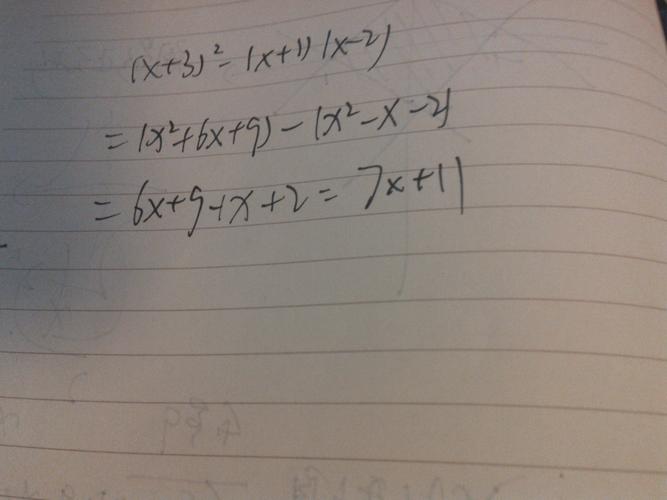 (x+3)²-(x+1)(x-2)
=(x²+6x+9)-(x²-x-2)
=6x+9+x+2=7x+11